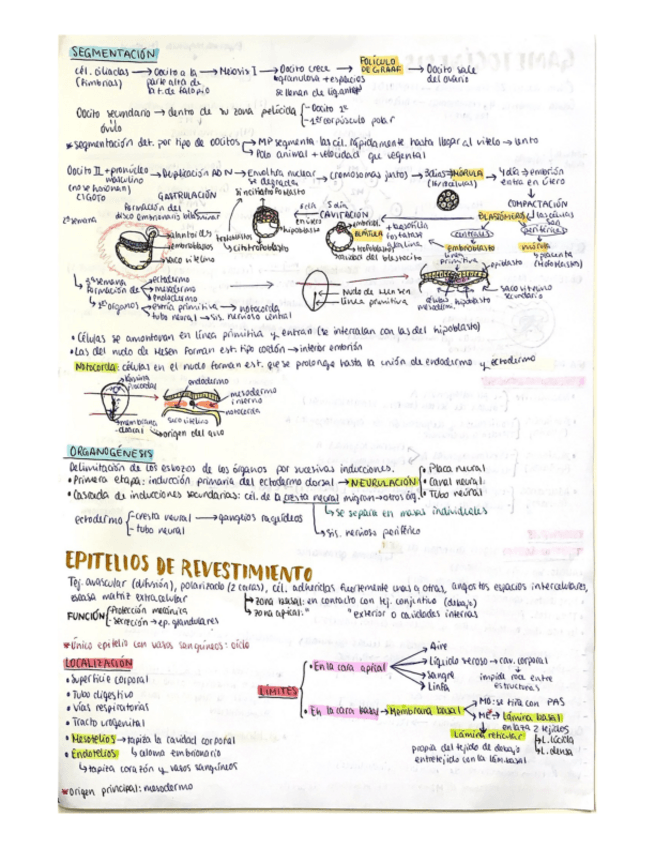 SEGMENTACIÓN
cél. ciliadas → Oocito a la → Meiosis I → Oocito crece → FOLÍCULO DE GRAAF → Oocito sale
(fimbrias) parte alta de granulosa + espacios del ovario
la t. de falopio se llenan de
Oocito secundario → dentro de su zona pelúcida - Oocito 1º
óvulo - 1er corpúsculo polar
*segmentación det. por tipo de oocitos → MP segmenta las cél. rápidamente hasta llegar al vitelo → lento
Polo animal + velocidad que vegetal
Oocito II + pronúcleo → Duplicación ADN → Envoltura nuclear → cromosomas juntos → 3 días → MÓRULA → 4 día → embrión
masculino se degrada entra en útero
CIGOTO GASTRULACIÓN sincitiotrofoblasto COMPACTACIÓN
formación del CAVITACIÓN BLASTÓMEROS
2ª semana disco embrionario bilaminar en útero
citotrofoblasto BLÁSTULA centrales periféricas
embrioblasto embrioblasto
saco vitelino trofoblasto línea primitiva epiblasto
cavidad del blastocito
3ª semana ectodermo saco vitelino
formación de mesodermo Nudo de Hensen secundario
endodermo línea primitiva hipoblasto
1º órganos → estría primitiva → notocorda
tubo neural → sis. nervioso central
• Células se amontonan en línea primitiva y entran (se intercalan con las del hipoblasto)
• Las del nudo de Hesen forman est. tipo cordón → interior embrión
Notocorda: células en el nudo forman est. que se prolonga hasta la unión de endodermo y ectodermo
lámina endodermo
mesodermo
interno
notocorda
membrana saco vitelino
cloacal → origen del ano
ORGANOGÉNESIS
Delimitación de los esbozos de los órganos por sucesivas inducciones.
• Primera etapa: inducción primaria del ectodermo dorsal → NEURULACIÓN • Placa neural
• Canal neural
• Cascada de inducciones secundarias: cél. de la cresta neural migran → otros órg. • Tubo neural
se separa en masas individuales
ectodermo - cresta neural → ganglios raquídeos
- tubo neural sis. nervioso periférico
EPITELIOS DE REVESTIMIENTO
Tej. avascular (difusión), polarizado (2 caras), cél. adheridas fuertemente unas a otras, angostos espacios intercelulares,
escasa matriz extracelular → zona basal: en contacto con tej. conjuntivo (debajo)
FUNCIÓN Protección mecánica → zona apical: " exterior o cavidades internas
secreción → ep. glandulares
*Único epitelio con vasos sanguíneos: oído
LOCALIZACIÓN
• Superficie corporal
• Tubo digestivo
• Vías respiratorias
• Tracto urogenital
• Mesotelios → tapiza la cavidad corporal
• Endotelios → celoma embrionario
↳ tapita corazón y vasos sanguíneos
*Origen principal: mesodermo
LÍMITES
• En la cara apical
Aire
Líquido seroso → cav. corporal
Sangre impide roce entre
Linfa estructuras
• En la cara basal → Membrana basal → MO: se tiñe con PAS
ME → Lámina basal
enlaza 2 tejidos
Lámina reticular L. lúcida
L. densa
propia del tejido de debajo
entretejido con la lám. basal